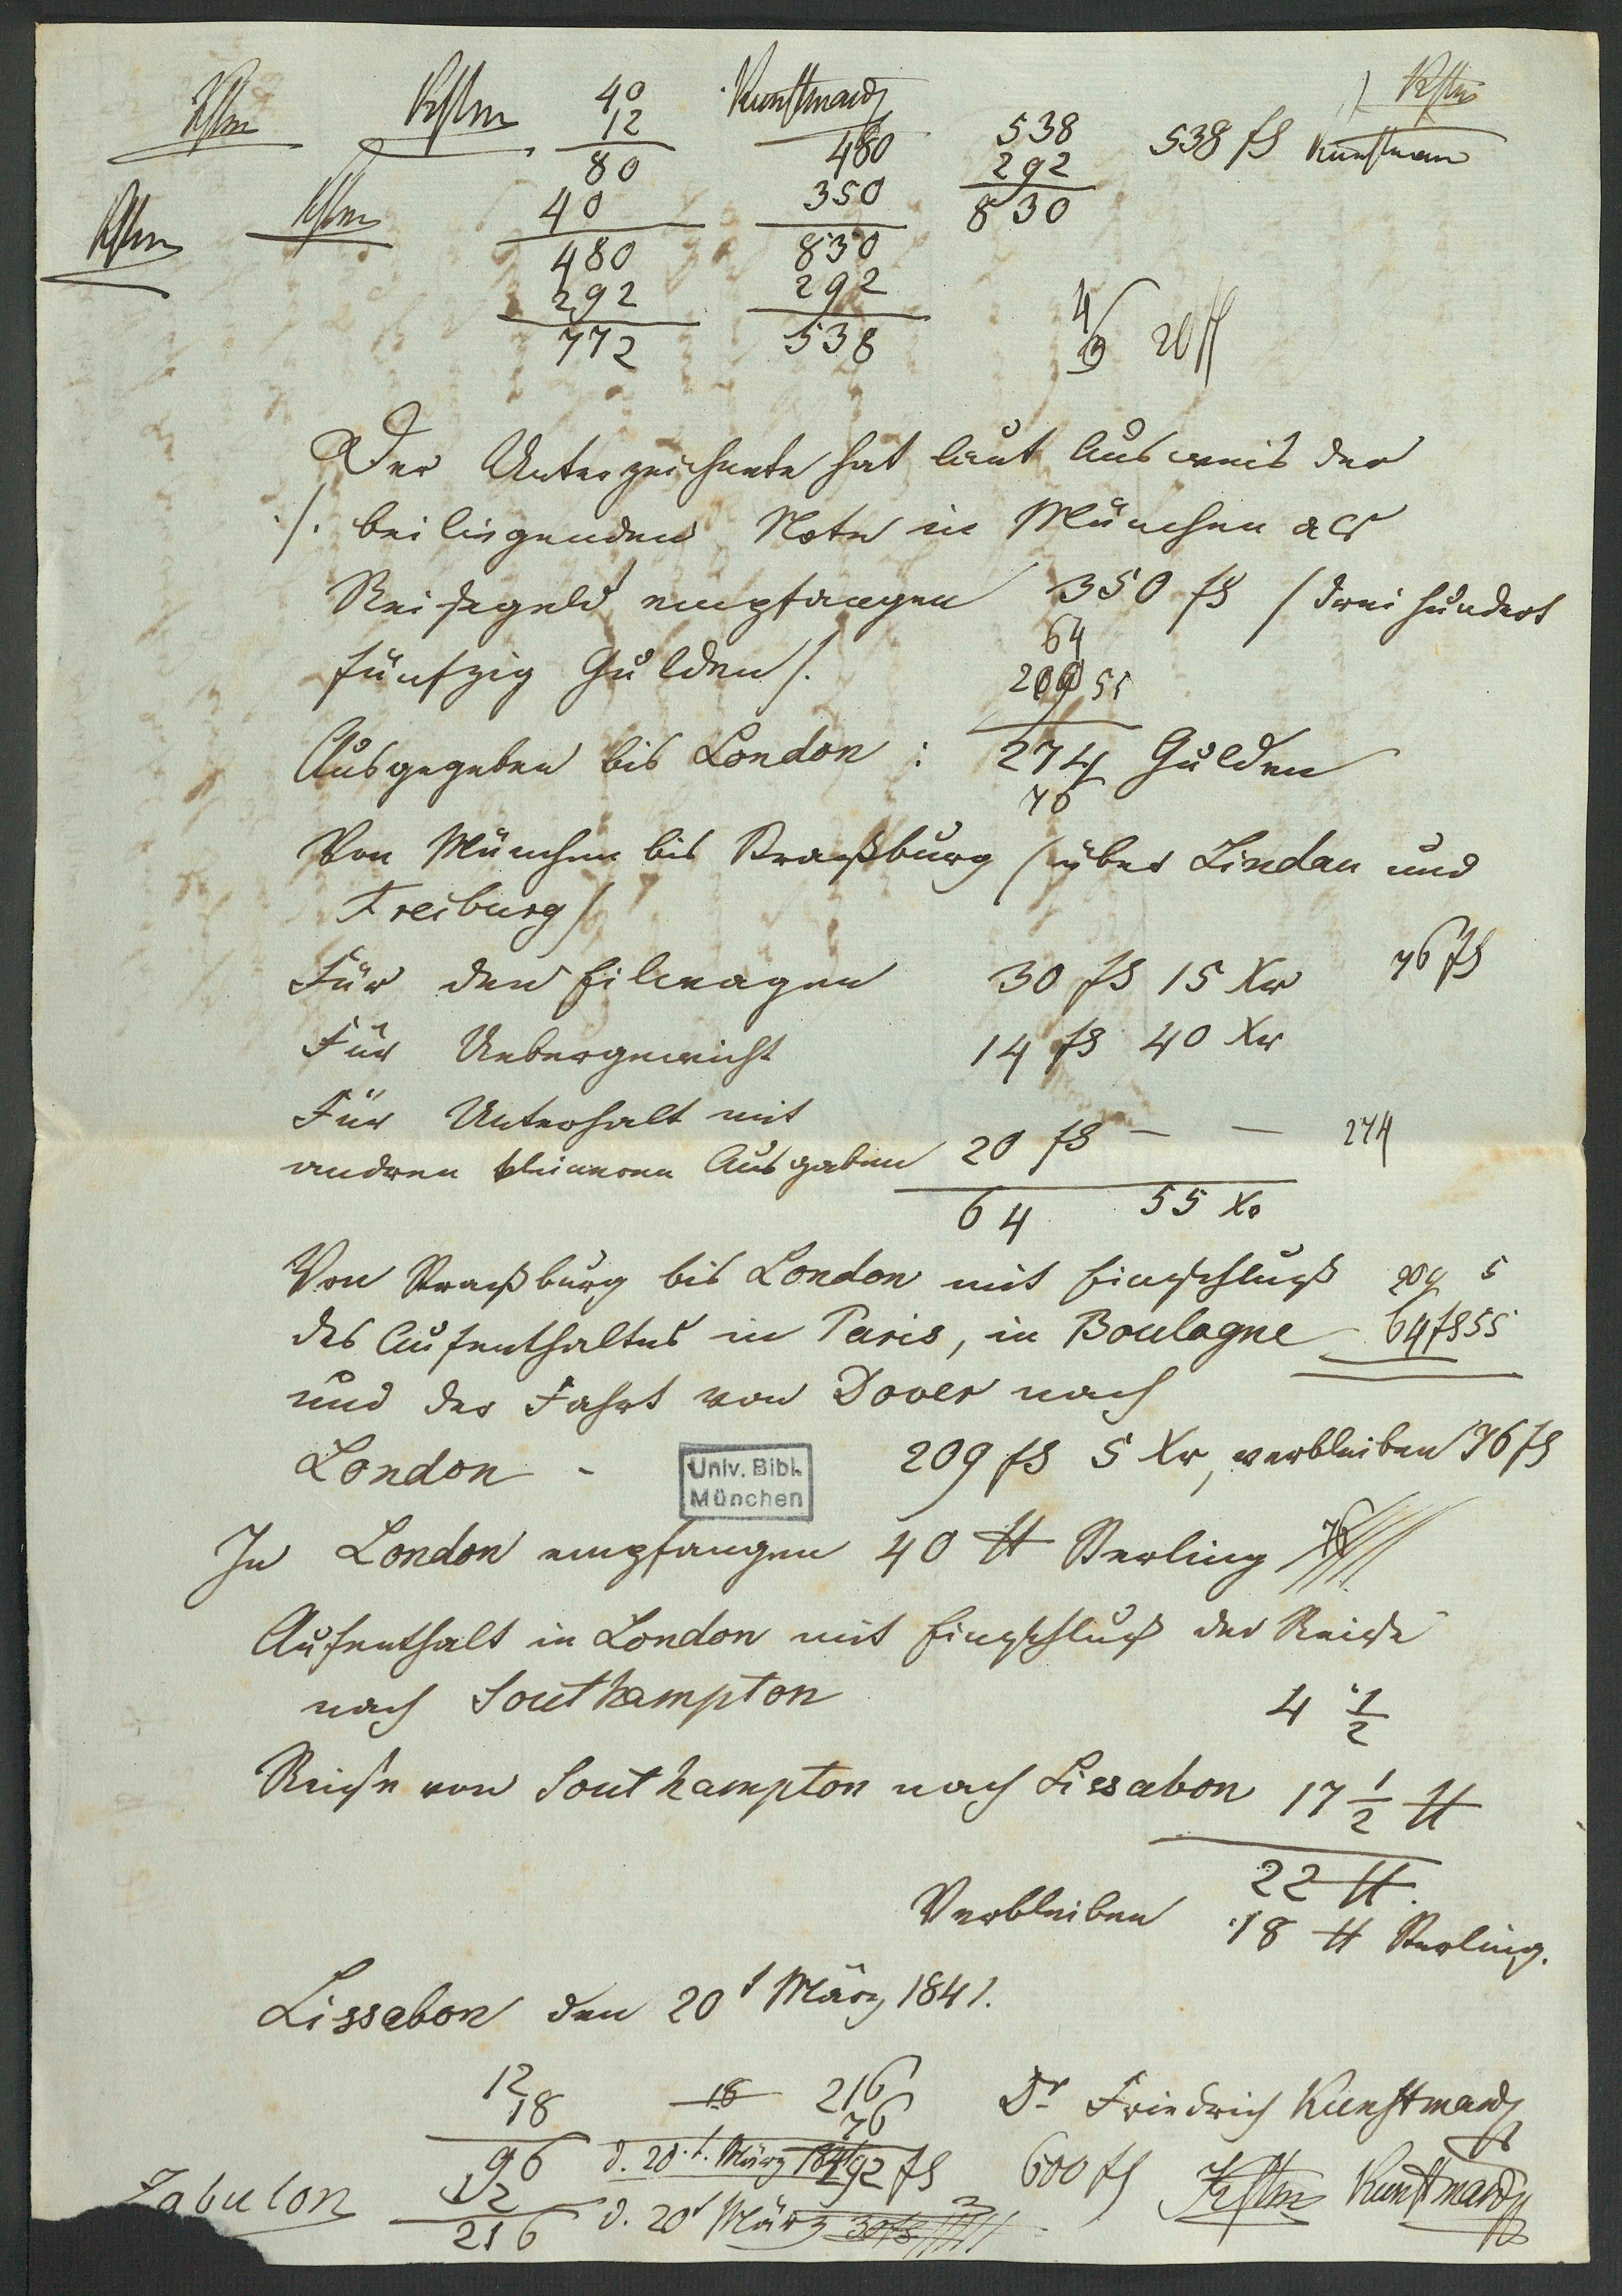 Kstm Kstm 40 Kunstmann Kstm
12 538 538 fl Kunstman
80 480 292
Kstm Kstm 40 350 830
480 830
292 292
772 538
20 ℔
Der Unterzeichnete hat laut Ausweis der
./. beiliegenden Note in München als
Reisegeld empfangen 350 fl /dreihundert
64
fünfzig Gulden/.
209 55
Ausgegeben bis London : 274 Gulden
76
Von München bis Straßburg /über Lindau und
Freiburg/
Für den Eilwagen 30 fl 15 Xr 76 fl
Für Uebergewicht 14 fl 40 Xr
Für Unterhalt mit
andren kleineren Ausgaben 20 fl — — 274
64 55 Xr
Von Straßburg bis London mit Einschluß 209 5
des Aufenthaltes in Paris, in Boulogne 64 fl 55
und der Fahrt von Dover nach
London - 209 fl 5 Xr, verbleiben 76 fl
Univ. Bibl.
München
In London empfangen 40 ℔ Sterling 76
Aufenthalt in London mit Einschluß der Reise
nach Southampton 4 1/2
Reise von Southampton nach Lissabon 17 1/2 ℔
22 ℔.
Verbleiben 18 ℔ Sterling.
Lissabon den 20t März 1841.
12 18 216 Dr Friedrich Kunstmann
18 76
96 d. 20.t. März 1841 292 fl 600 fl Kstm Kunstmann
Zabulon 12
216 d. 20t März 30 fl